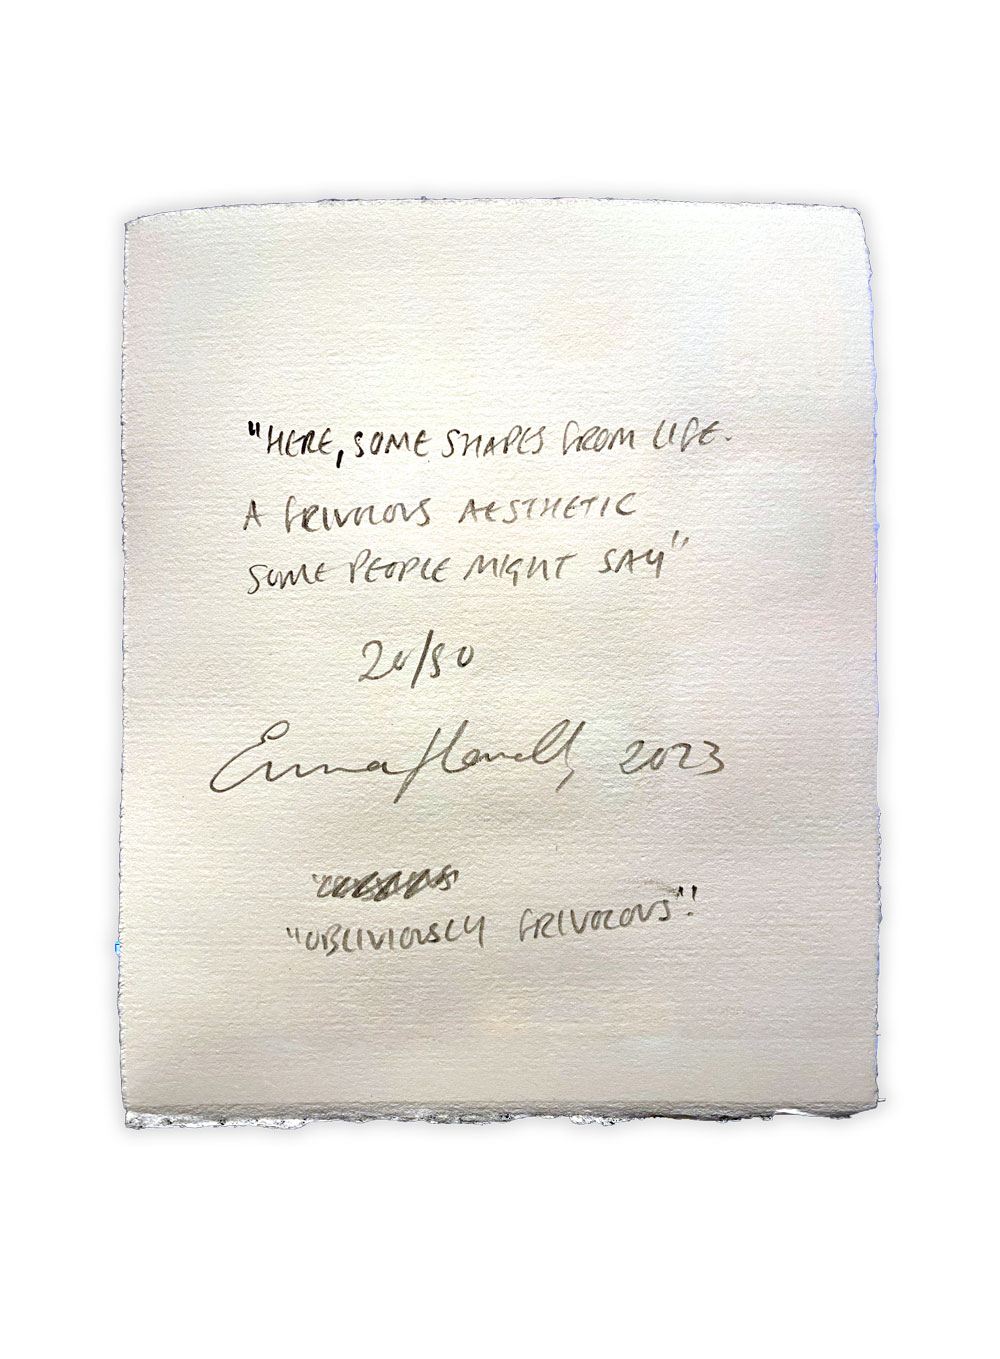 "HERE, SOME SHAPES FROM LIFE.
A FRIVOLOUS AESTHETIC
SOME PEOPLE MIGHT SAY"
20/50
Emma 2023
"OBLIVIOUSLY FRIVOLOUS"!